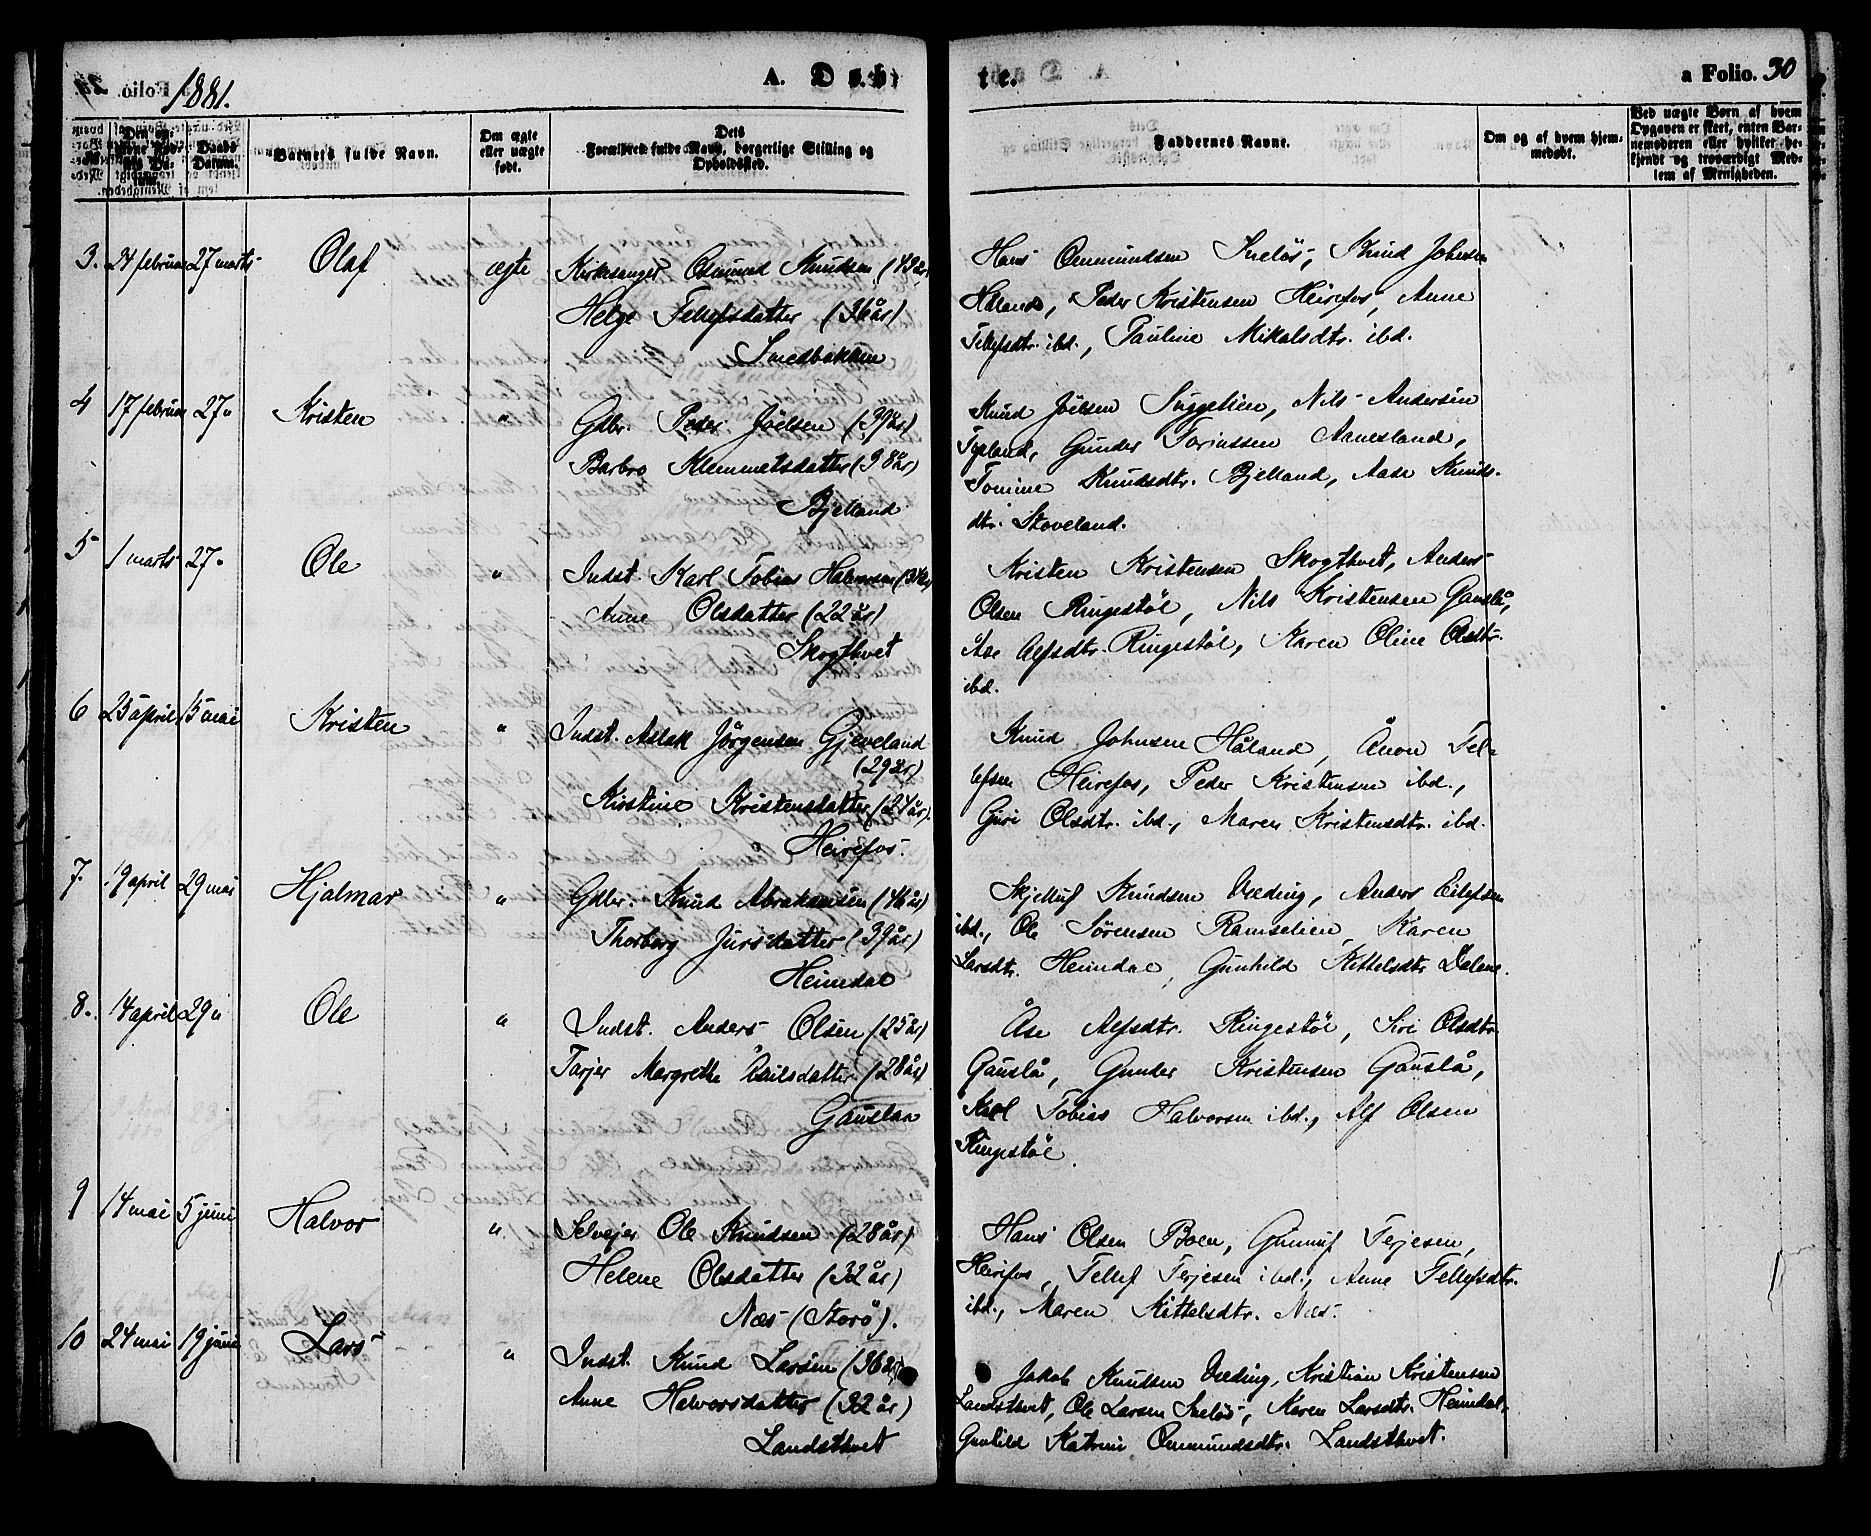 1881.
A. Døbte.
a Folio. 30
Barnets fulde Navn.
Om ægte eller uægte født.
Dets Forældres fulde Navn, borgerlige Stilling og Opholdssted.
Faddernes Navne.
Om og af hvem hjemmedøbt.
Ved uægte Børn af hvem Opgaven er skeet, enten Barnemoderen eller hvilket bekjendt og troværdigt Medlem af Menigheden.
3. 24 februar 27 marts Olaf ægte Kirkesanger Osmund Knudsen (43 år)
Helge Tellefsdatter (36 år)
Smedbakken
Hans Onmundsen Sneløs, Knud Johnsen
Håland, Peder Kristensen Heirefos, Anne
Tellefsdtr. ibd., Pauline Mikalsdtr. ibd.
4 17 februar 27 " Kristen " Gdbr. Peder Joelsen (39 år)
Barbro Klemmetsdatter (38 år)
Bjelland
Knud Joelsen Suggelien, Nils Andersen
Typland, Gunder Torinssen Aanesland,
Tomine Knudsdtr. Bjelland, Aase Knuds-
dtr. Stoveland.
5 1 marts 27 " Ole " Indst. Karl Tobias Halvorsen (34 år)
Anne Olsdatter (22 år)
Skogthvet
Kristen Kristensen Skogthvet, Anders
Olsen Ringestøl, Nils Kristensen Gauslå,
Åse Alfsdtr. Ringestøl, Karen Oline Olsdtr.
ibd.
6 25 april 15 mai Kristen " Indst. Aslak Jørgensen Gjeveland
(29 år)
Kirstine Kristensdatter (24 år).
Heirefos.
Knud Johnsen Håland, Ånon Tel-
lefsen Heirefos, Peder Kristensen ibd.,
Guri Olsdtr. ibd., Maren Kristensdtr. ibd.
7. 19 april 29 mai Hjalmar " Gdbr. Knud Abrahamsen (46 år)
Thorborg Jursdatter (39 år)
Heimdal
Skjelluf Knudsen Væding, Anders Eilefsen
ibd., Ole Sørensen Ramselien, Karen
Larsdtr. Heimdal, Gunhild Kittelsdtr. Dalene.
8. 14 april 29 " Ole " Indst. Anders Olsen (25 år)
Tarjer Margrethe Nilsdatter (28 år)
Gauslaa
Åse Alfsdtr. Ringestøl, Siri Olsdtr.
Gauslå, Gunder Kristensen Gauslå,
Karl Tobias Halvorsen ibd., Alf Olsen
Ringestøl.
9 14 mai 5 juni Halvor " Selvejer Ole Knudsen (28 år)
Helene Olsdatter (32 år)
Næs (Storø).
Hans Olsen Boen, Gunnuf Terjesen,
Heirefos, Tellef Terjesen ibd., Anne Tellefsdtr.
ibd., Maren Kittelsdtr. Næs.
10 24 mai 19 juni Lars " Indst. Knud Larsen (36 år)
Anne Halvorsdatter (32 år)
Landsthvet
Jakob Knudsen Væding, Kristian Kristensen
Landsthvet, Ole Larsen Sneløs, Karen Larsdtr. Heimdal,
Gunhild Katrine Onmundsdtr. Landsthvet.